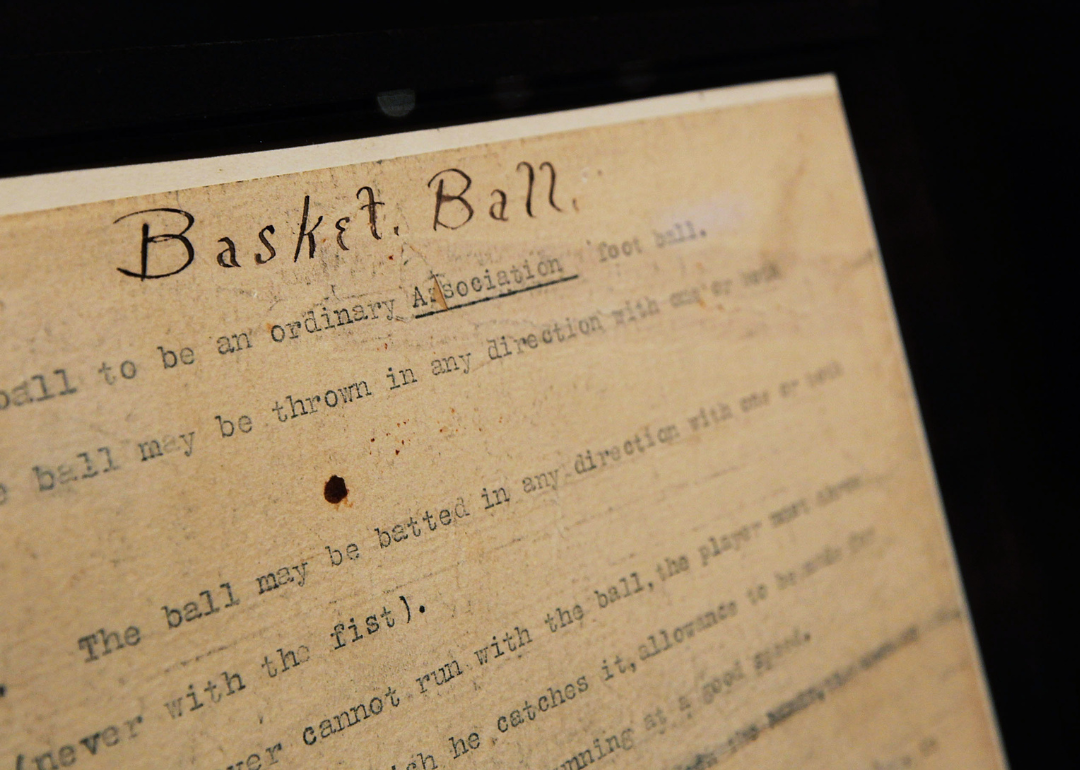 Basket. Ball.
ball to be an ordinary Association foot ball.
ball may be thrown in any direction with one or both
The ball may be batted in any direction with one or both
(never with the fist).
cannot run with the ball, the player must throw
he catches it, allowance to be made for
running at a good speed.